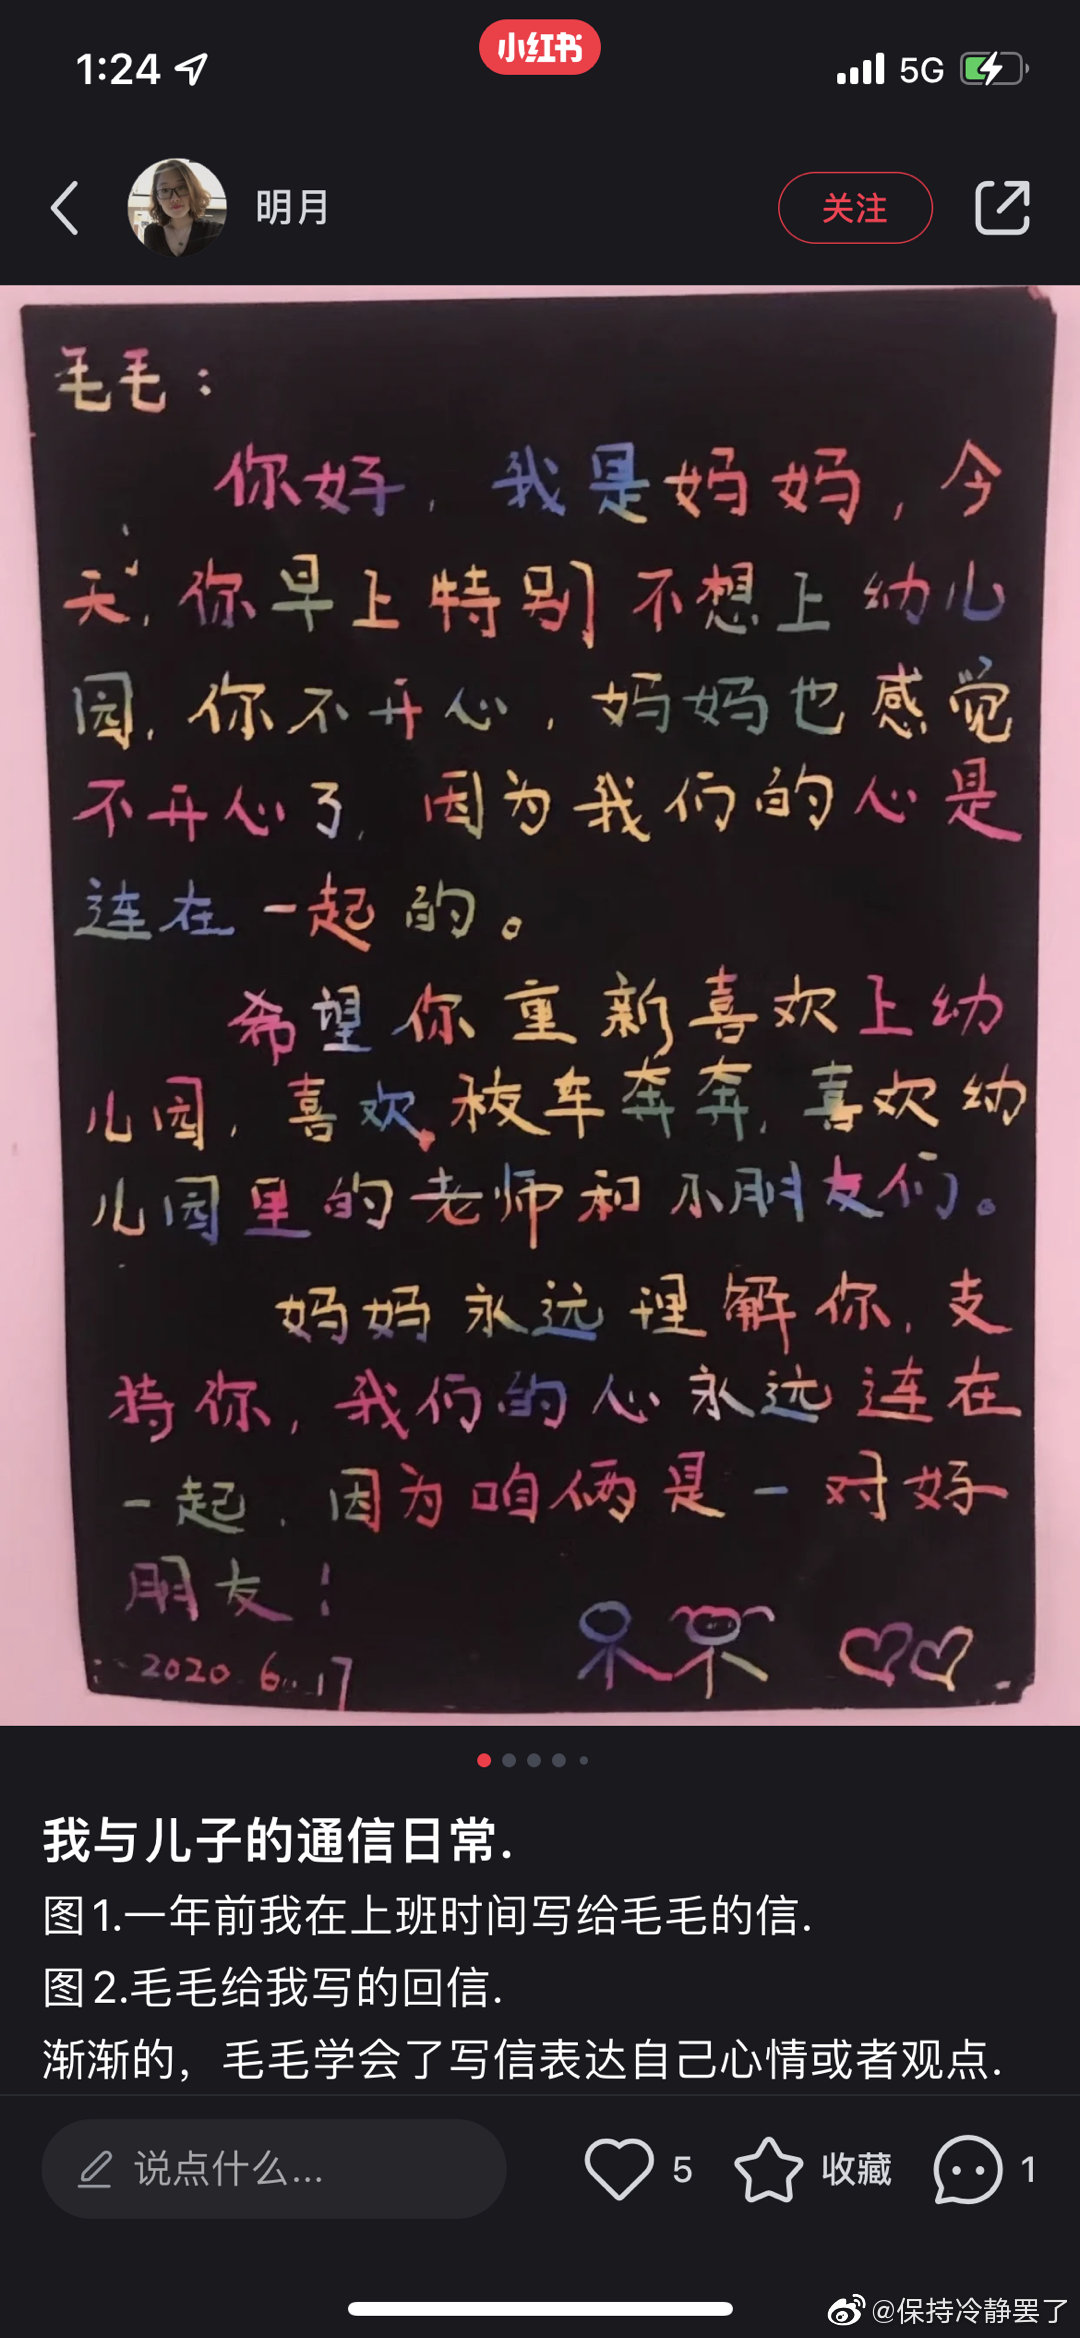 1:24
小红书
5G
明月
关注
毛毛：
你好，我是妈妈，今
天，你早上特别不想上幼儿
园，你不开心，妈妈也感觉
不开心了，因为我们的心是
连在一起的。
希望你重新喜欢上幼
儿园，喜欢校车奔奔，喜欢幼
儿园里的老师和小朋友们。
妈妈永远理解你，支
持你，我们的心永远连在
一起，因为咱俩是一对好
朋友！
2020.6.17
我与儿子的通信日常.
图1.一年前我在上班时间写给毛毛的信.
图2.毛毛给我写的回信.
渐渐的，毛毛学会了写信表达自己心情或者观点.
说点什么...
5
收藏
1
@保持冷静罢了